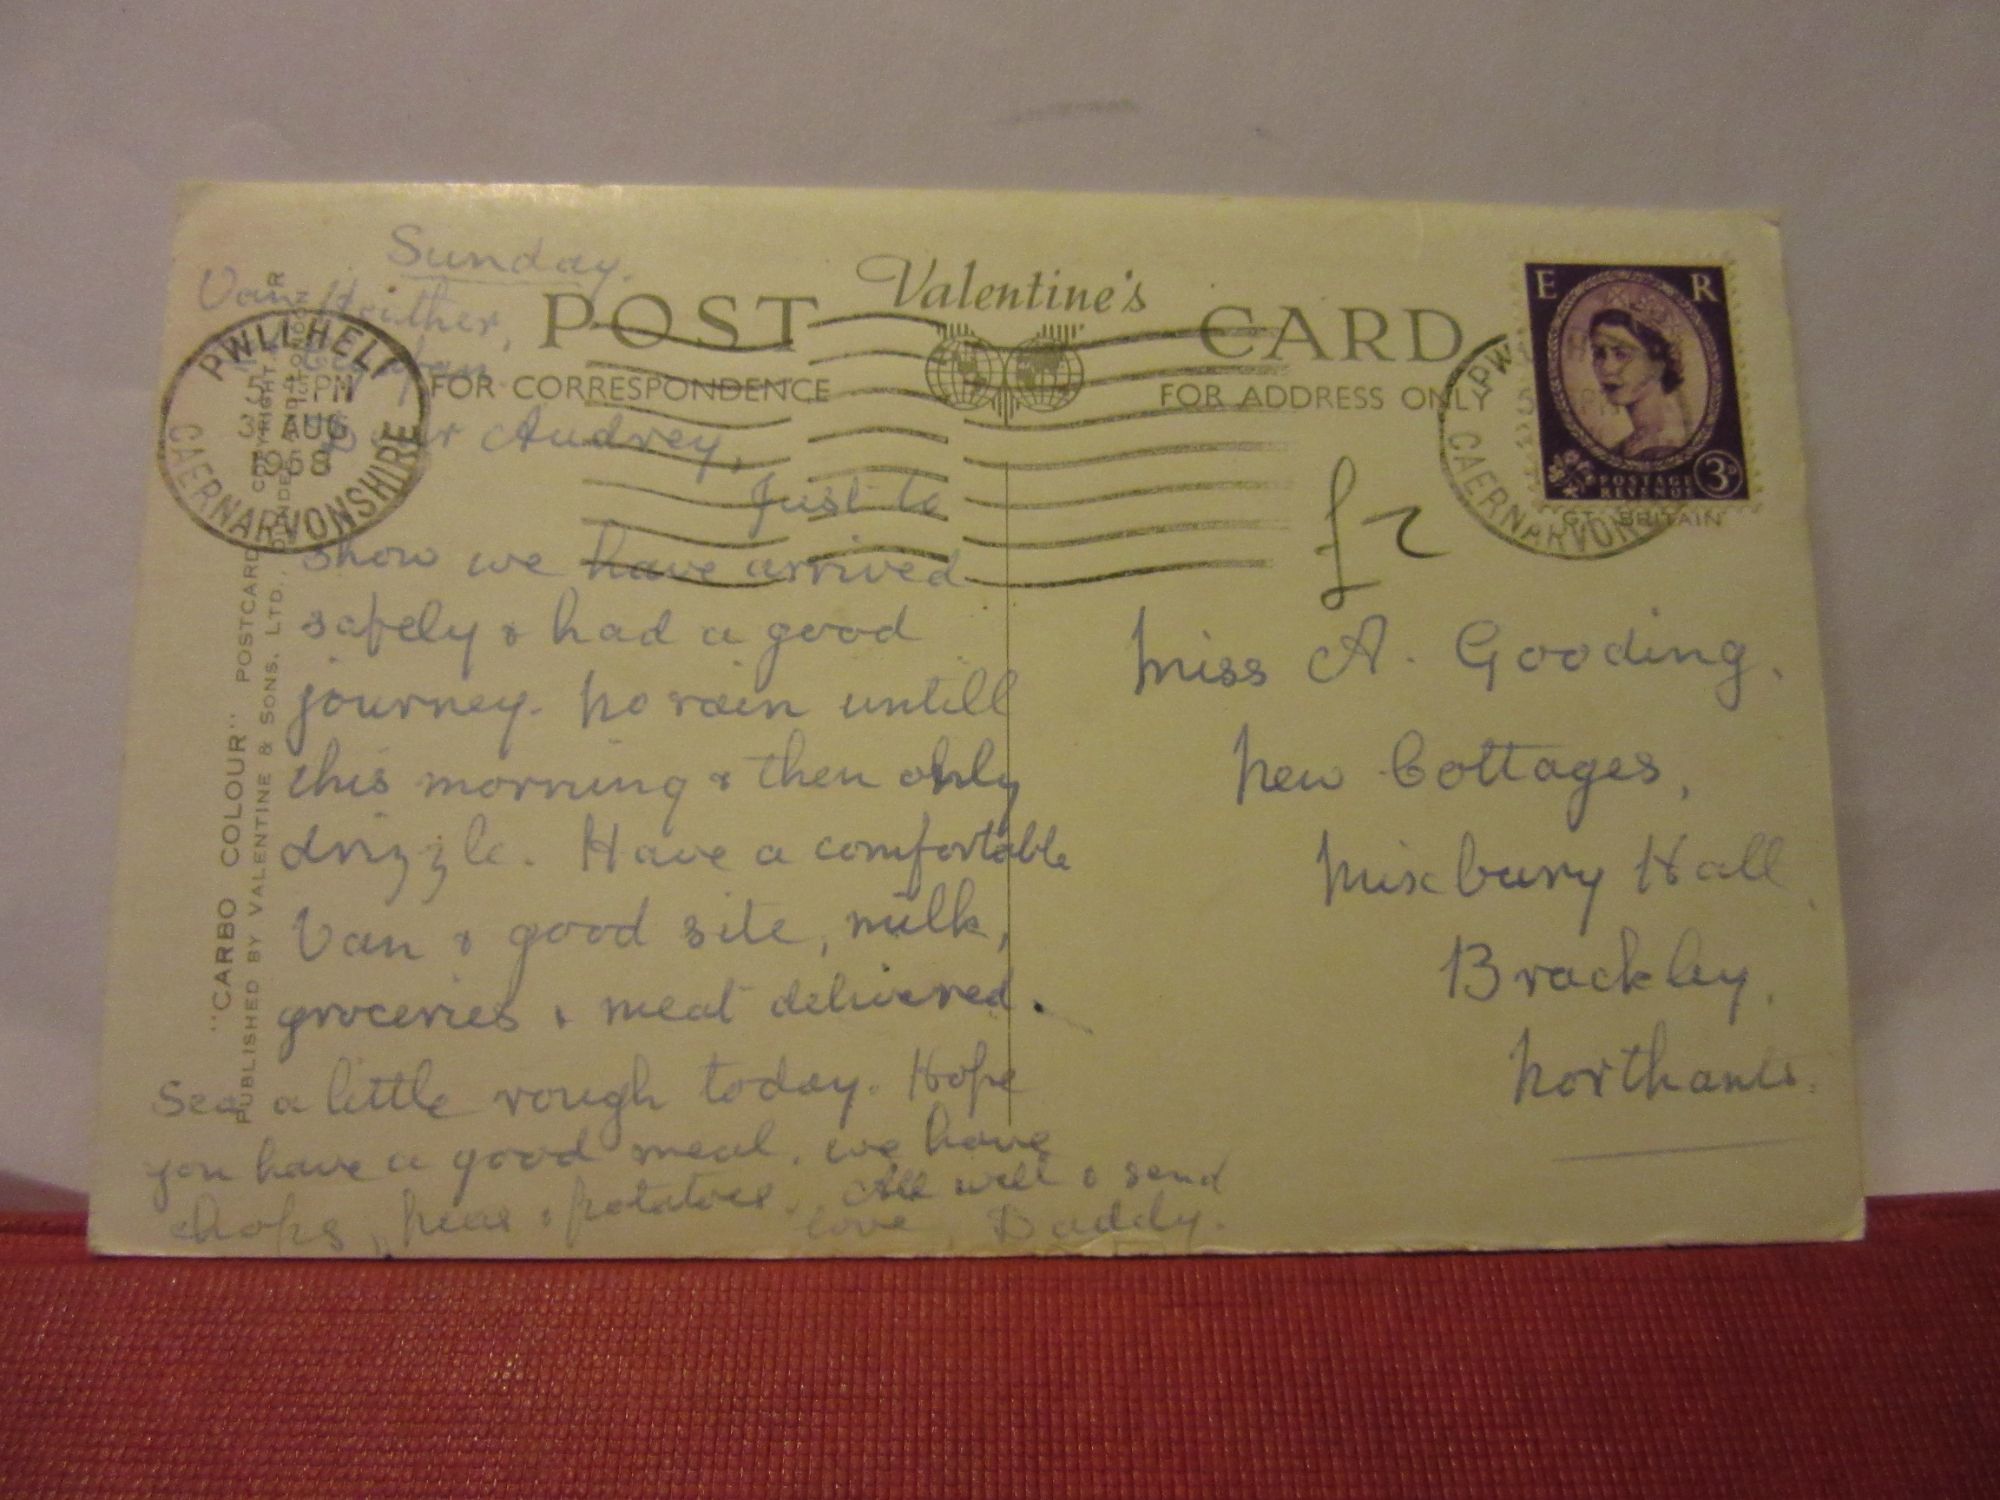 Sunday.
Van Heither,
POST Valentine's CARD
FOR CORRESPONDENCE
FOR ADDRESS ONLY
PWLLHELI
5 45 PM
AUG
CAERNARVONSHIRE
E R
POSTAGE
REVENUE
3D
GT. BRITAIN
PW
CAERNARVON
£2
Dear Audrey,
Just to
show we have arrived
safely & had a good
journey. No rain untill
this morning & then only
drizzle. Have a comfortable
Van & good site, milk,
groceries & meat delivered.
Sea a little rough today. Hope
you have a good meal. we have
chops, peas & potatoes. All well & send
love, Daddy.
Miss A. Gooding.
New Cottages,
Mixbury Hall
Brackley,
Northants.
"CARBO COLOUR" POSTCARD
PUBLISHED BY VALENTINE & SONS, LTD.,